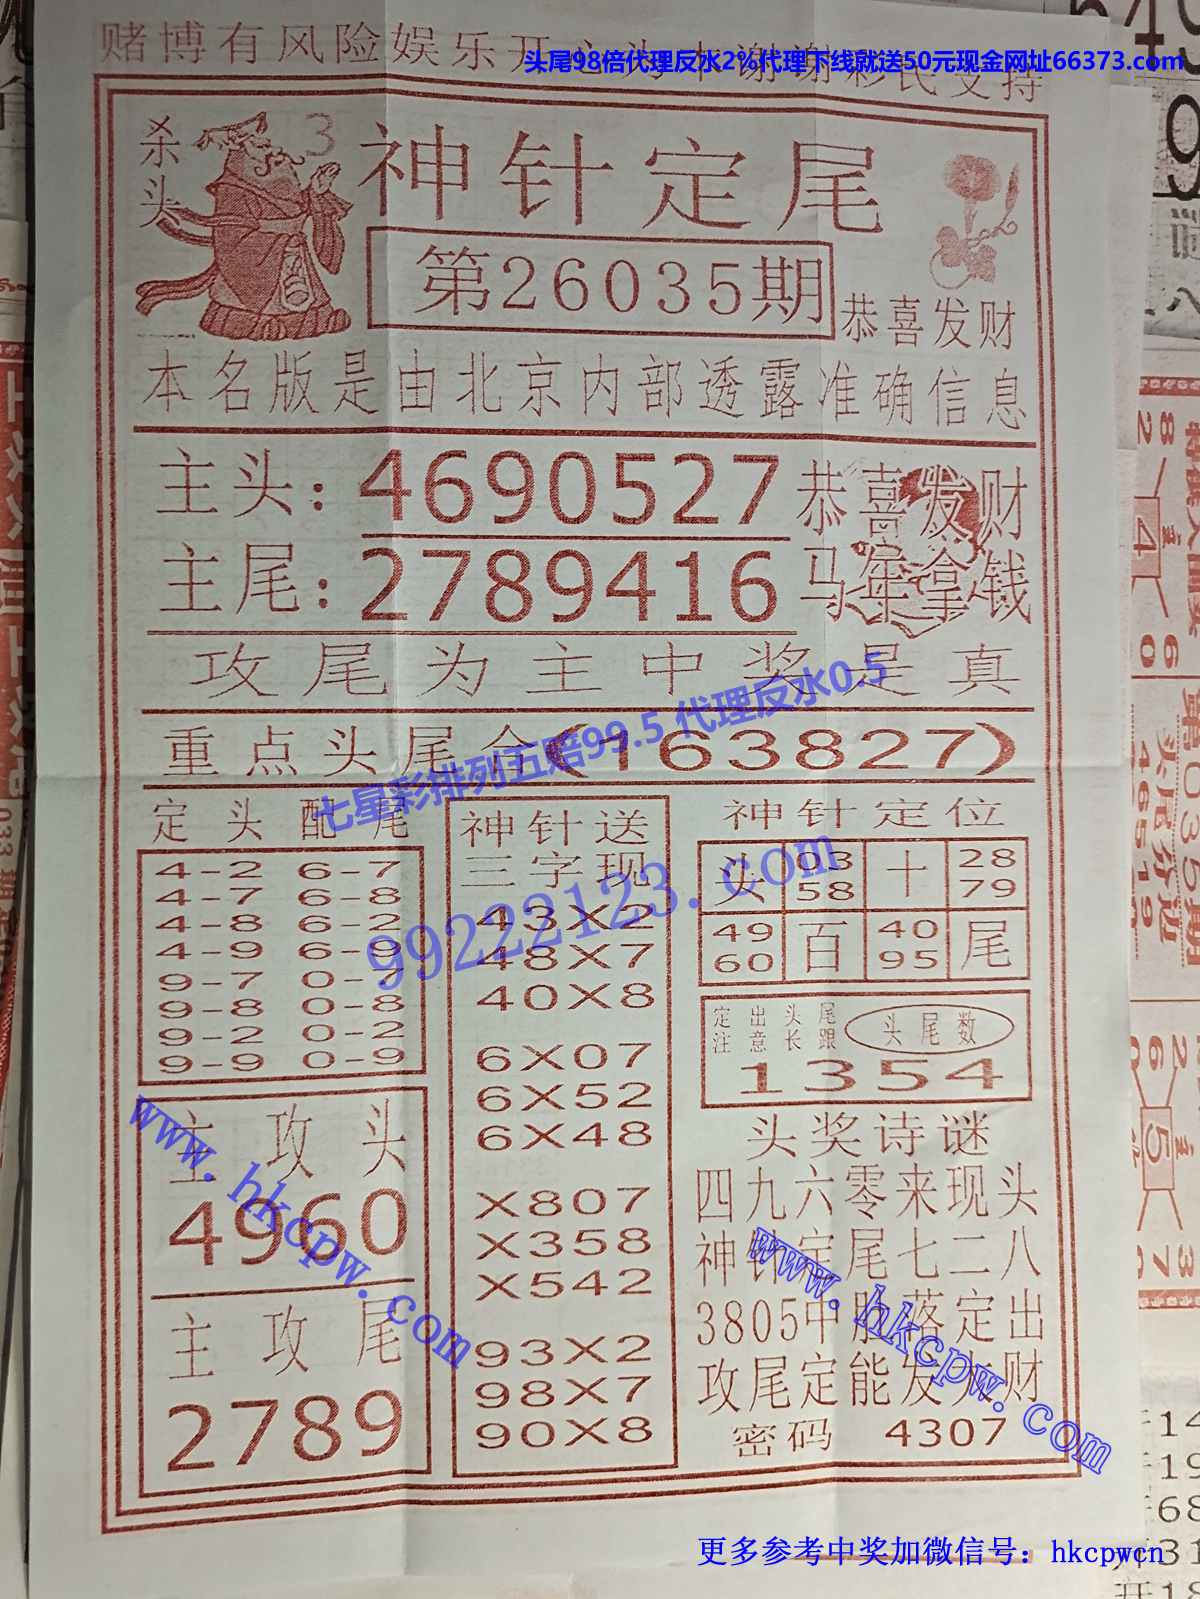 赌博有风险娱乐开心为本谢谢彩民支持
头尾98倍代理反水2%代理下线就送50元现金网址66373.com
杀头
3
神针定尾
第26035期
恭喜发财
本名版是由北京内部透露准确信息
主头：4690527
恭喜发财
主尾：2789416
马年拿钱
攻尾为主中奖是真
重点头尾合(163827)
七星彩排列五赔99.5 代理反水0.5
99222123.com
定头 配尾
4-2 6-7
4-7 6-8
4-8 6-2
4-9 6-9
9-7 0-7
9-8 0-8
9-2 0-2
9-9 0-9
主攻头
4960
主攻尾
2789
神针送
三字现
43X2
48X7
40X8
6X07
6X52
6X48
X807
X358
X542
93X2
98X7
90X8
神针定位
头 03 58 十 28 79
49 60 百 40 95 尾
定出头尾
注意长跟
头尾数
1354
头奖诗谜
四九六零来现头
神针定尾七二八
3805中肚落定出
攻尾定能发大财
密码 4307
www.hkcpw.com
www.hkcpw.com
更多参考中奖加微信号：hkcpwcn